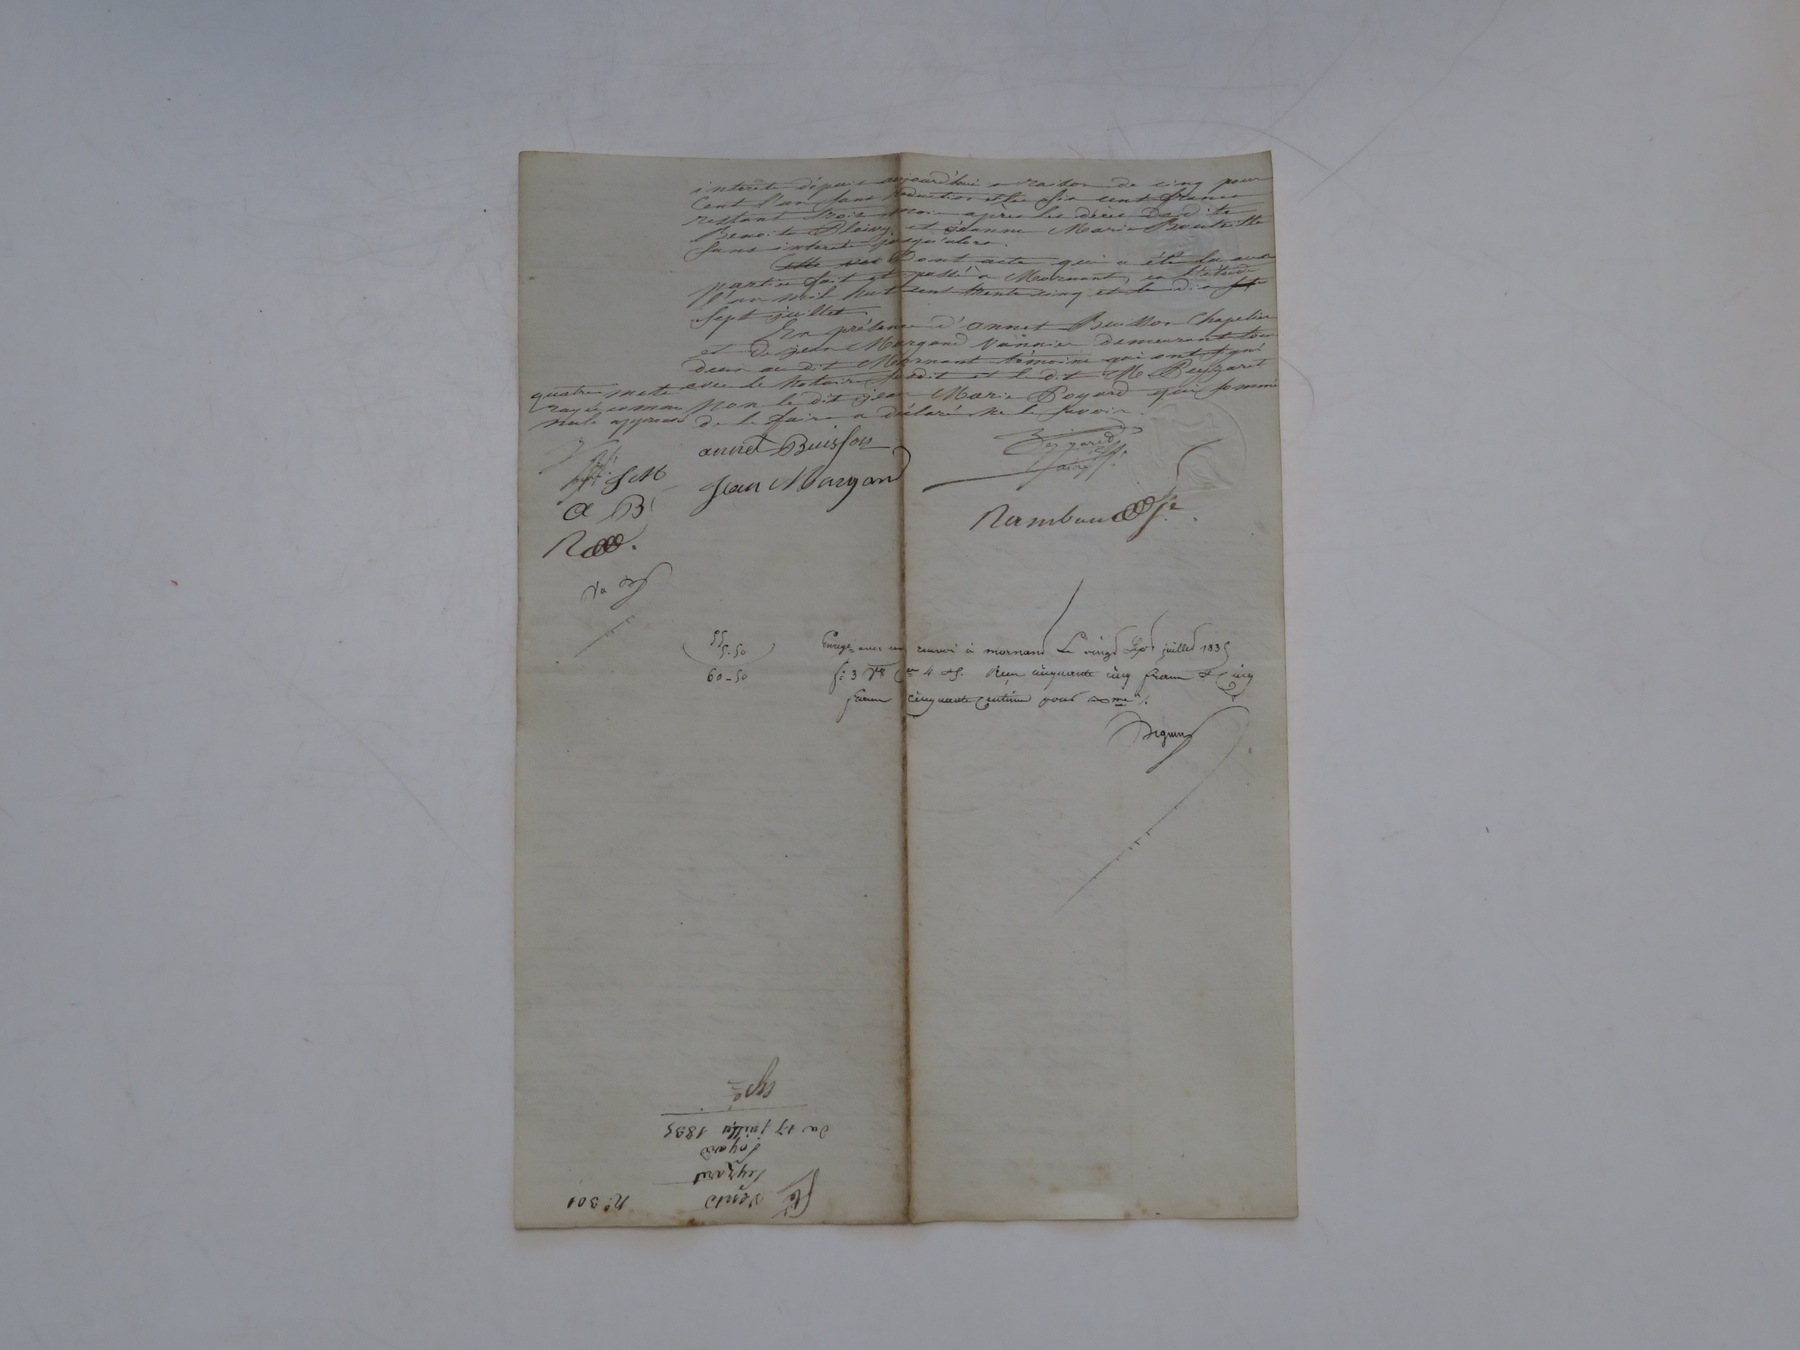 intérêts depuis aujourd'hui a raison de cinq pour
Cent l'an sans réduction et les six cent francs
restant trois mois après les décès de dite
Benoite et jeanne Marie Bouteille
sans intérêts jusqu'alors.
Dont acte qui a été lu aux
parties fait et passé a Mornant, en l'étude
l'an mil huit cent trente cinq et le dix
sept juillet
En présence d'annet Buisson Chapelier
et de jean Margand Vannier demeurant tous
deux au dit Mornant témoins qui ont signé
avec le Notaire susdit et le dit M Peyzaret
non le dit jean Marie Poyard qui sommé
de le faire a déclaré ne le savoir.
quatre mots
rayés comme
nuls approuvés
annet Buisson
Jean Margand
J M
a B
Rambaud
55
5.50
60-50
Enregé avec un renvoi à mornant Le vingt Sept juillet 1835
fo 3 Vo Ce 4 &S. Reçu cinquante cinq francs et Cinq
francs cinquante Centimes pour Dme
No 301
Vente
Peyzaret
Poyard
Du 17 juillet 1835
Expé